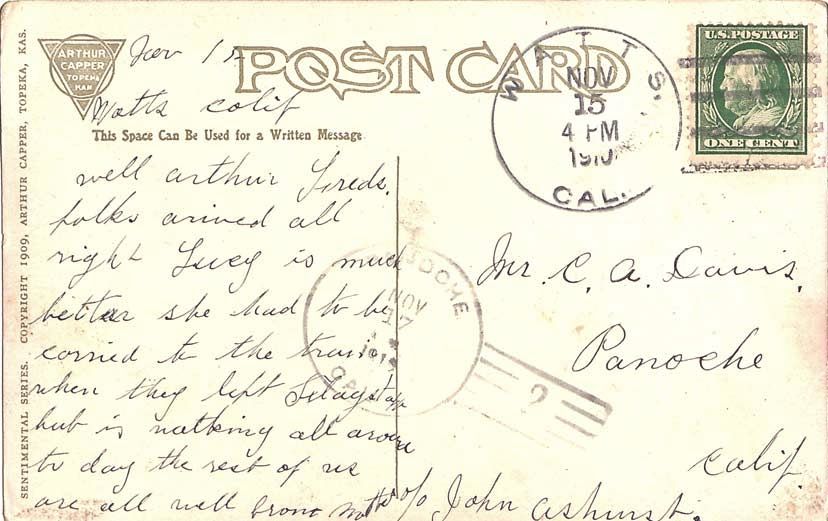 SENTIMENTAL SERIES. COPYRIGHT 1909, ARTHUR CAPPER, TOPEKA, KAS.
ARTHUR
CAPPER
TOPEKA
KAN
POST CARD
Nov 15
Watts Calif
This Space Can Be Used for a Written Message
well arthur Freds.
folks arived all
right Lucy is much
better she had to be
carried to the train
when they left
but is walking all around
to day the rest of us
are all well from
WATTS
NOV
15
4 PM
1910
CAL.
U.S. POSTAGE
ONE CENT
PANOCHE
NOV
17
1910
CAL
2
Mr. C. A. Davis.
Panoche
Calif.
c/o John Ashurst.